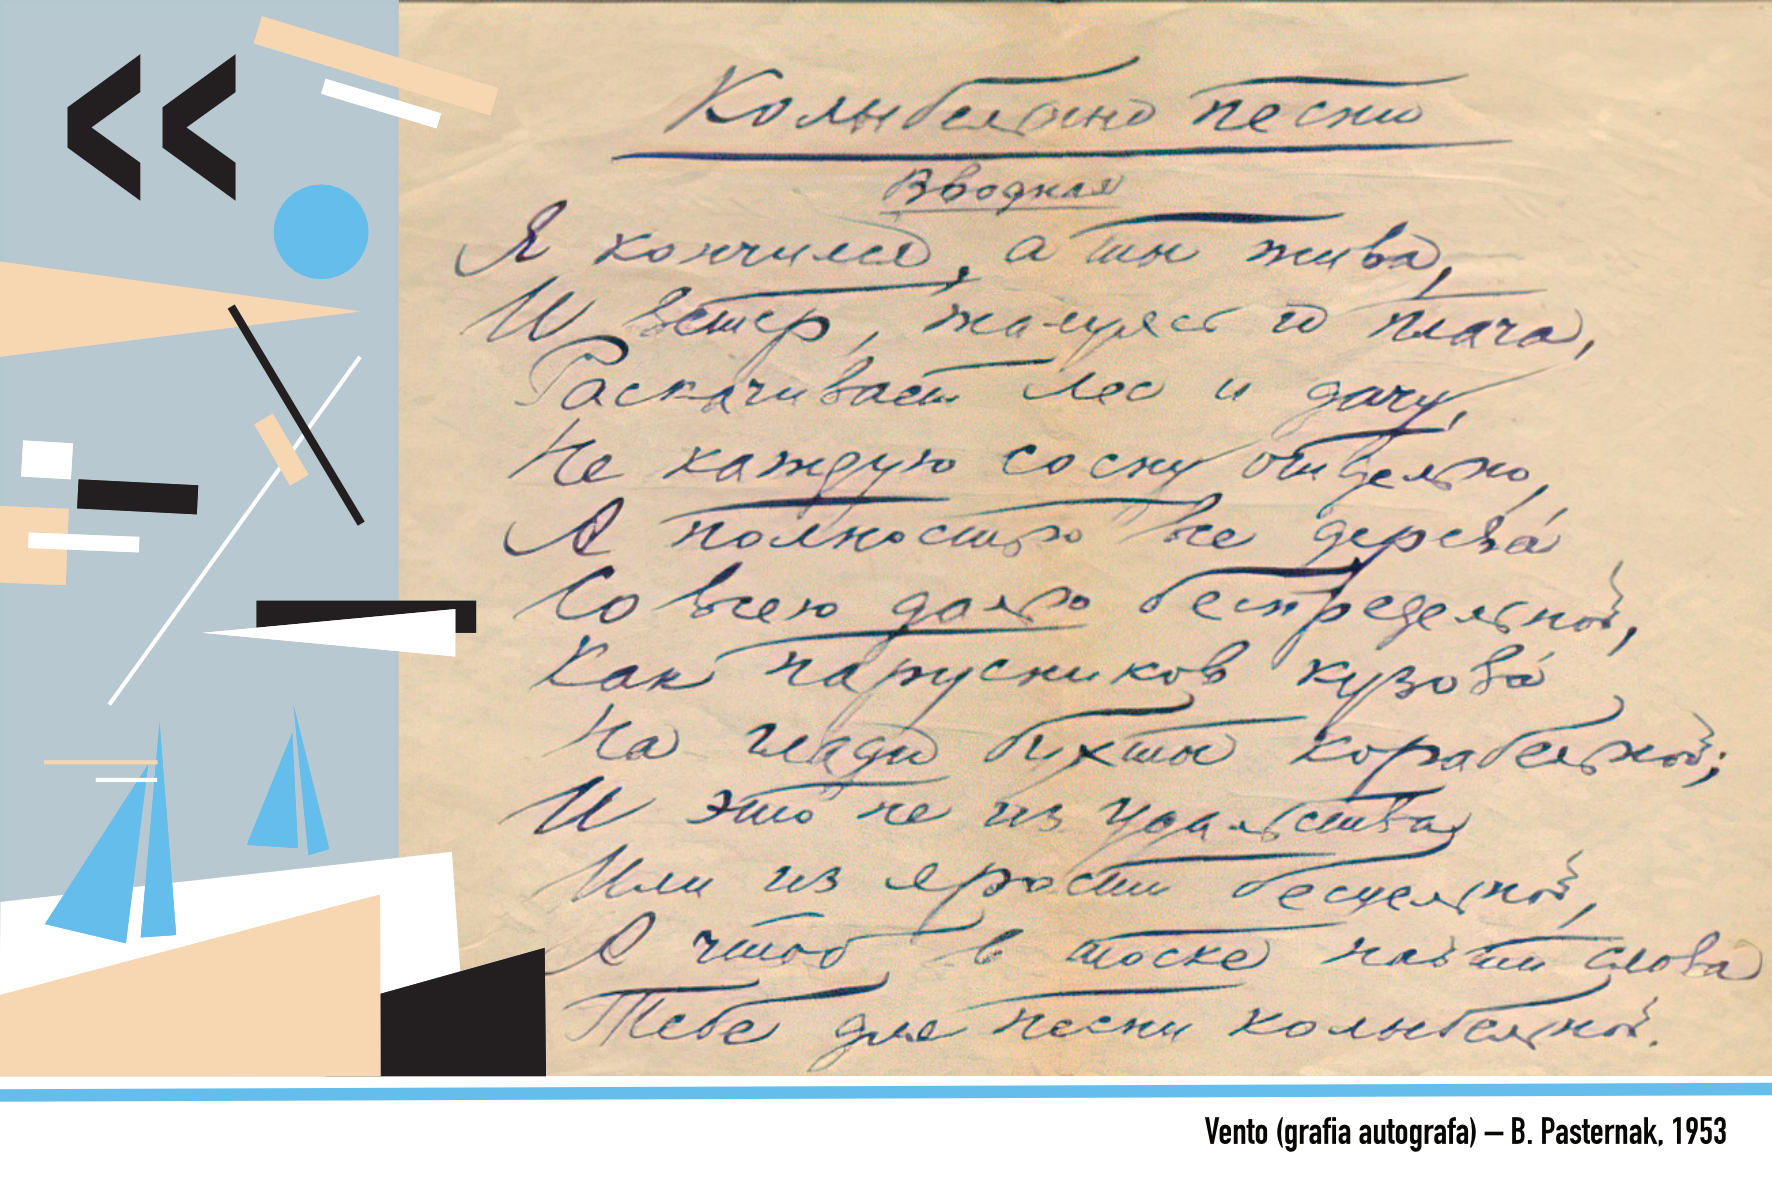 Колыбельные песни
Вводная
Я кончился, а ты жива,
И ветер, жалуясь и плача,
Раскачивает лес и дачу,
Не каждую сосну отдельно,
А полностью все дерева́
Со всею далью беспредельной,
Как парусников кузова́
На глади бухты корабельной;
И это не из удальства
Или из ярости бесцельной,
А чтоб в тоске найти слова
Тебе для песни колыбельной.
Vento (grafia autografa) – B. Pasternak, 1953